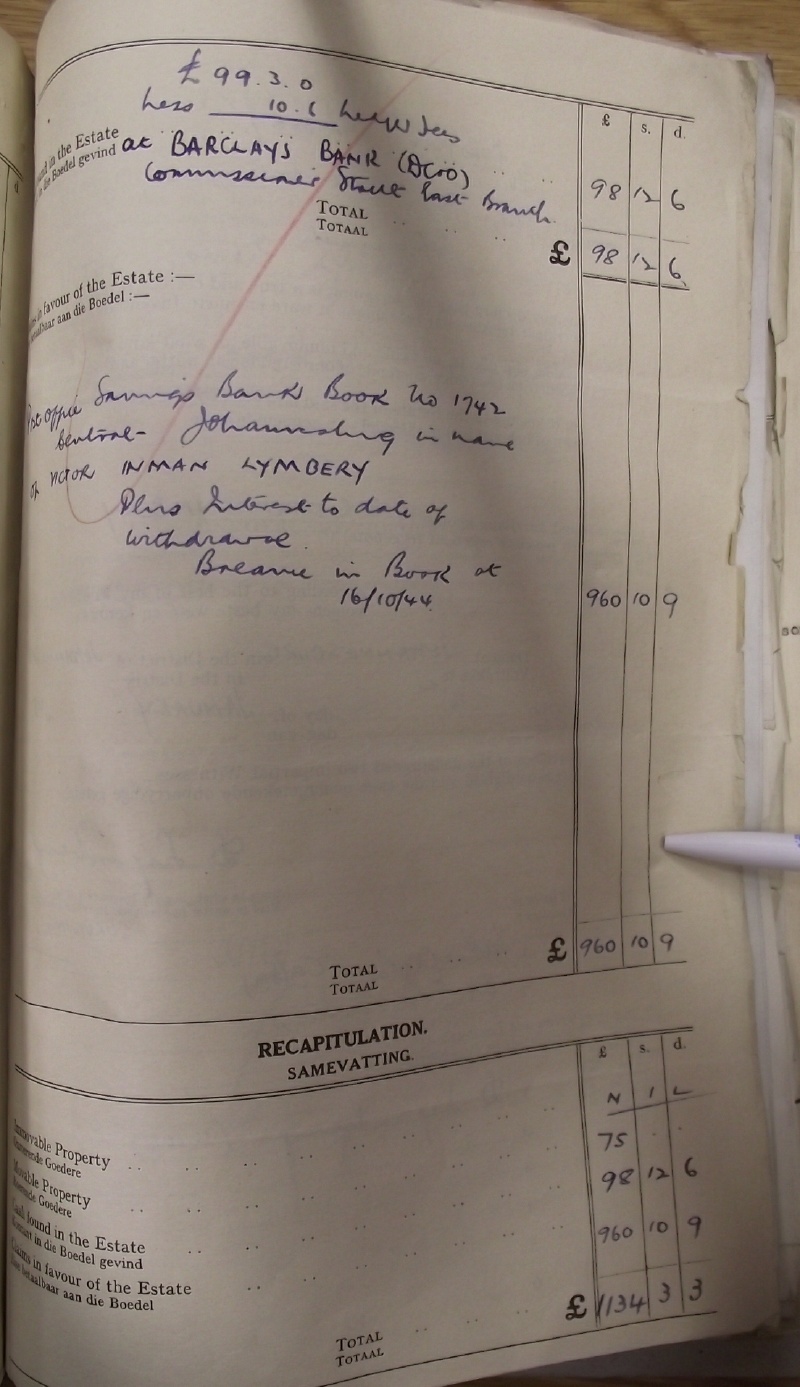 £99.3.0
Less 10.6 Ledger fees
£ s. d.
in the Estate
die Boedel gevind
at BARCLAYS BANK (DC&O) 98 12 6
Commissioner Street East Branch.
TOTAL
TOTAAL £ 98 12 6
favour of the Estate :—
aan die Boedel :—
Post Office Savings Bank Book No 1742
Central - Johannesburg in name
of VICTOR INMAN LYMBERY
Plus Interest to date of
withdrawal.
Balance in Book at
16/10/44 960 10 9
TOTAL
TOTAAL £ 960 10 9
RECAPITULATION.
SAMEVATTING.
£ s. d.
Immovable Property N I L
Goedere
Movable Property 75 . .
Goedere
Cash found in the Estate 98 12 6
in die Boedel gevind
Claims in favour of the Estate 960 10 9
betaalbaar aan die Boedel
TOTAL
TOTAAL £ 1134 3 3